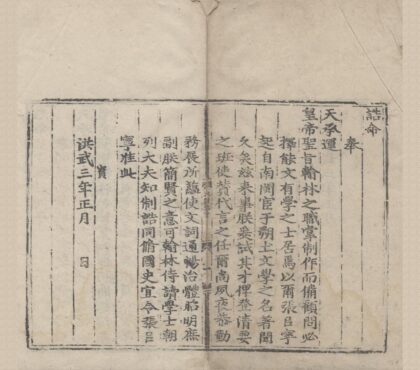 誥命
奉
天承運
皇帝聖旨翰林之職掌制作而備顧問必
擇能文有學之士居焉以爾張以寧
起自南閩宦于朔土文學之名著聞
久矣玆來事朕奚試其才俾登清要
之班使贊代言之任爾尚夙夜恭勤
務展所蘊使文詞通暢治體昭明無
副朕簡賢之意可翰林侍讀學士朝
列大夫知制誥同脩國史宜令張以
寧准此
寶
洪武三年正月 日